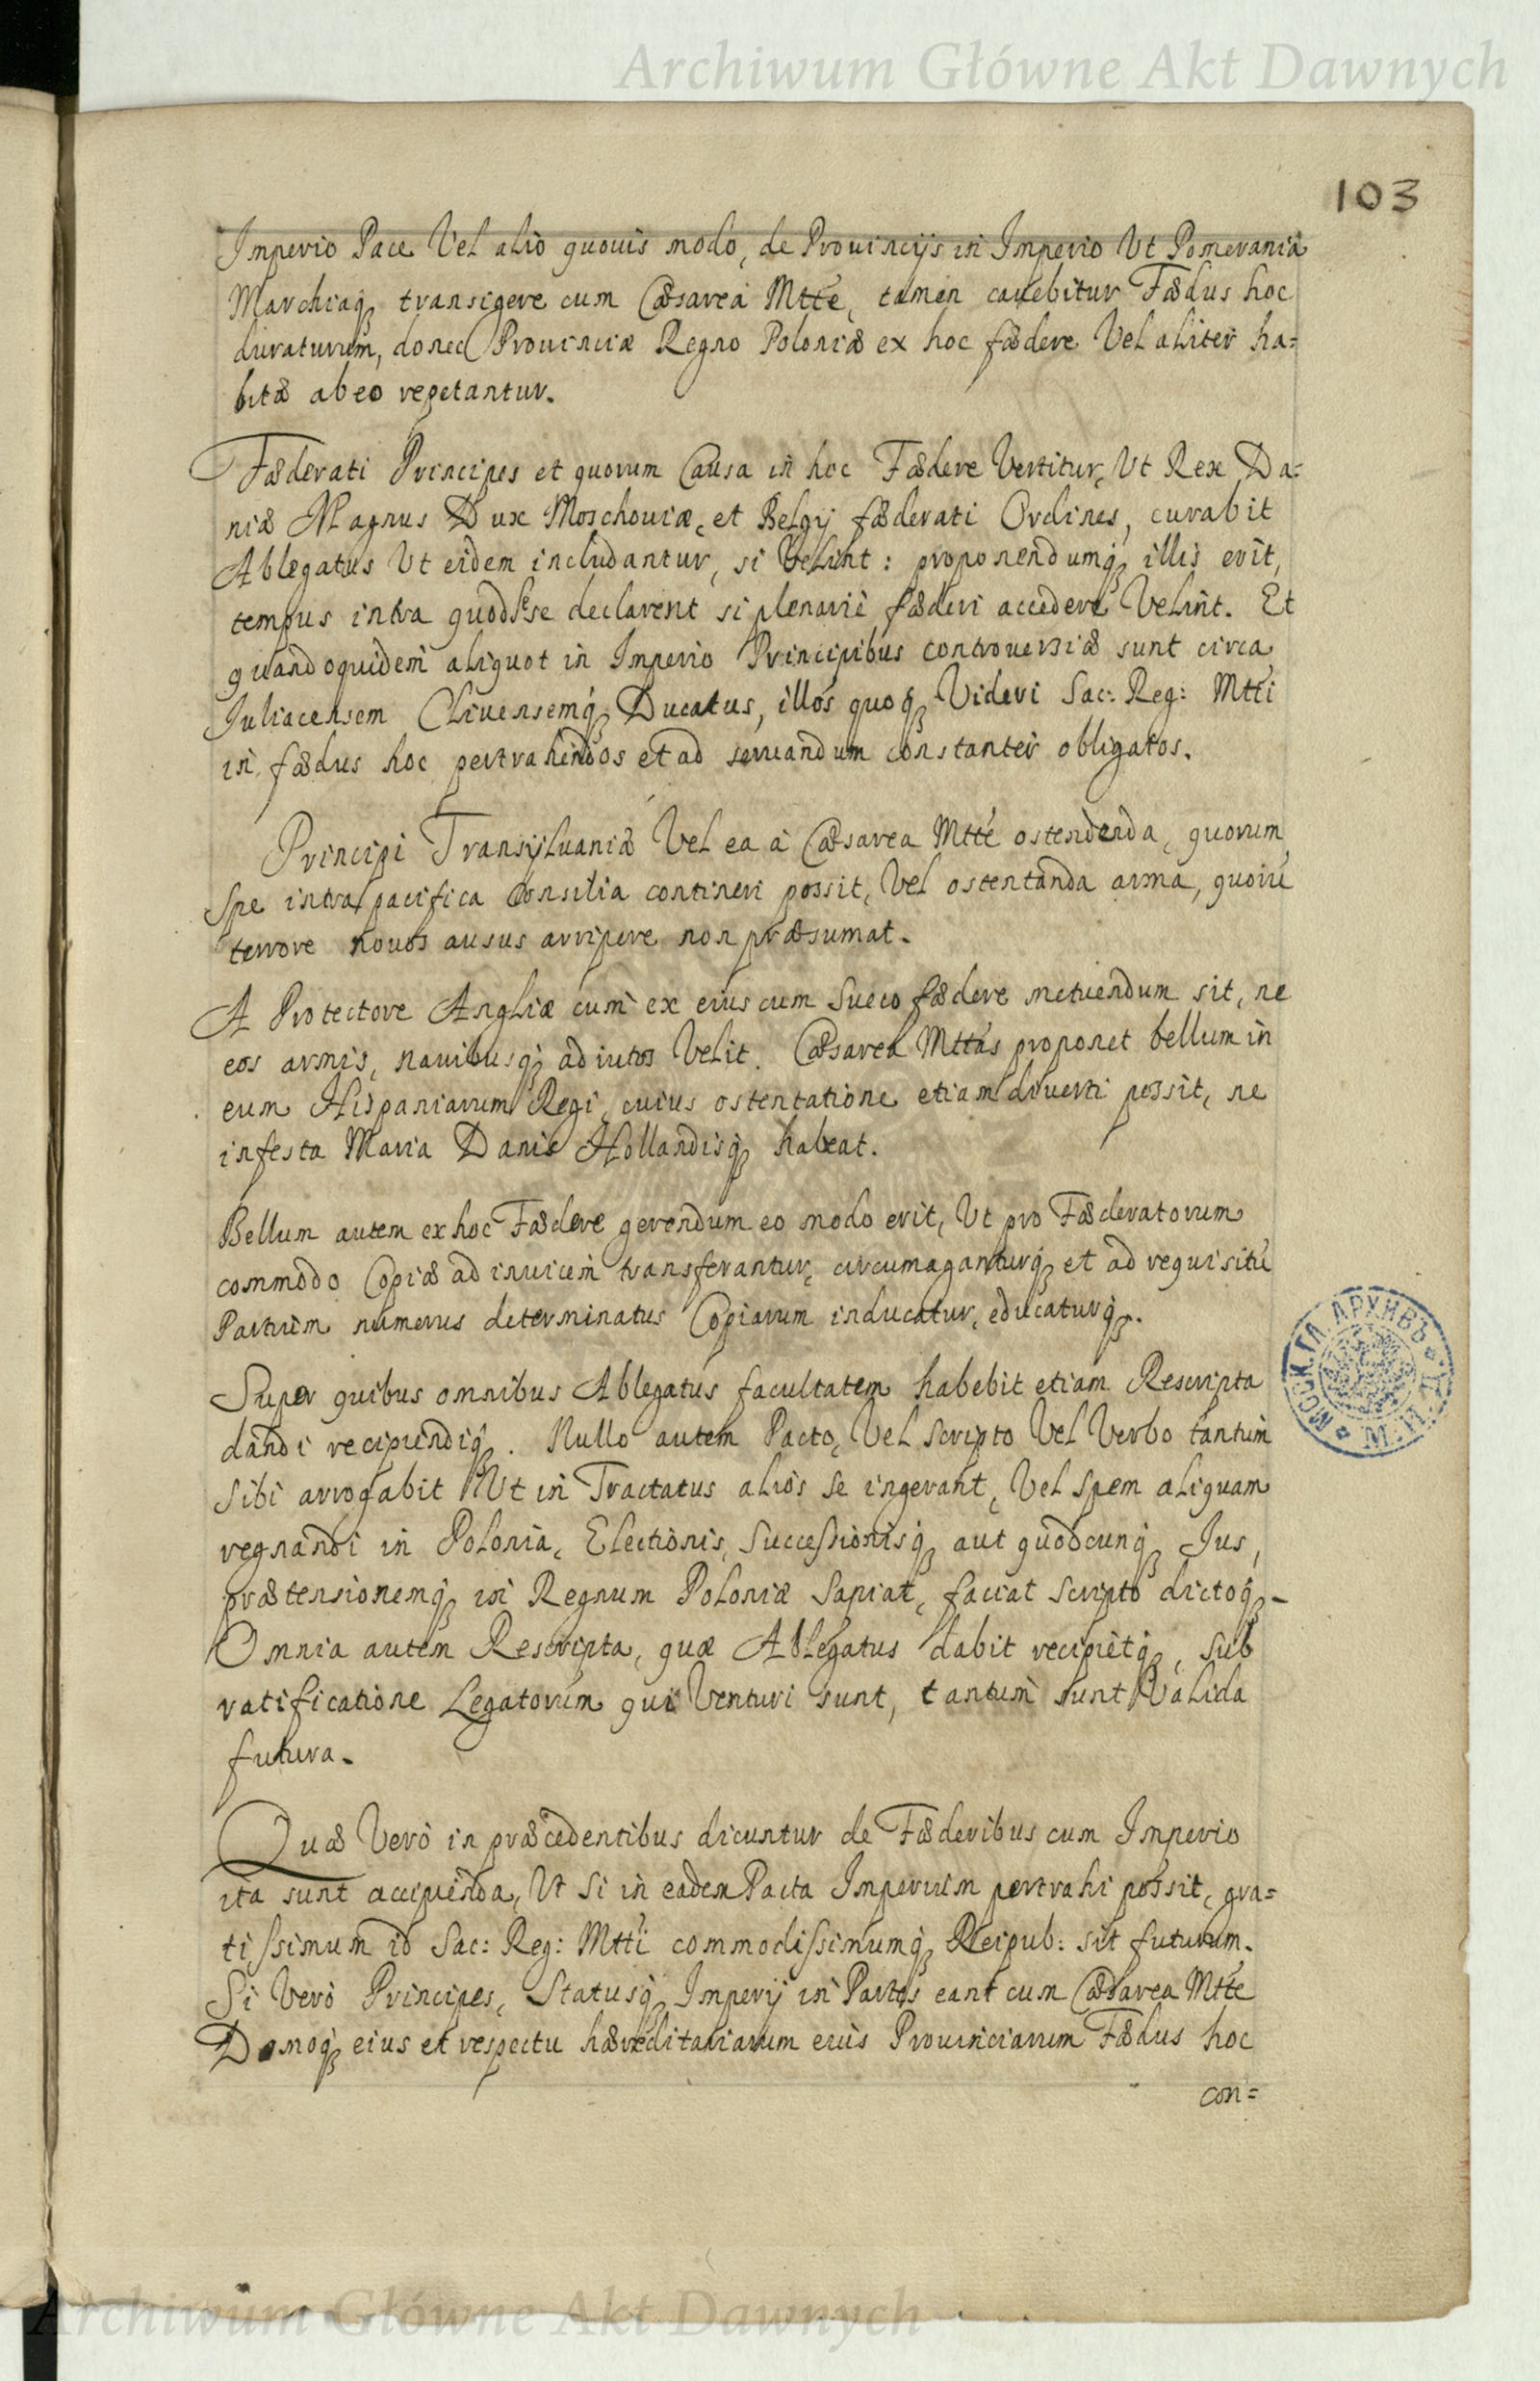 Archiwum Główne Akt Dawnych
103
Imperio Pace Vel alio quouis modo, de Prouincijs in Imperio Ut Pomerania
Marchiaq, transigere cum Cæsarea Mtte, tamen cauebitur Fædus hoc
duraturum, donec Prouinciæ Regno Poloniæ ex hoc fædere Vel aliter ha=
bitæ ab eo repetantur.
Fæderati Principes et quorum Causa in hoc Fædere Vertitur, Ut Rex Da=
niæ Magnus Dux Moschouiæ, et Belgij fæderati Ordines, curabit
Ablegatus Ut eidem includantur, si Velint: proponendumq, illis erit,
tempus intra quod sese declarent si plenariè fæderi accedere Velint. Et
quandoquidem aliquot in Imperio Principibus controuersiæ sunt circa
Iuliacensem Cliuensemq, Ducatus, illos quoq, Videri Sac: Reg: Mtti
in fædus hoc pertrahendos et ad seruandum constanter obligatos.
Principi Transyluaniæ Vel ea à Cæsarea Mtte ostendenda, quorum
spe intra pacifica Consilia contineri possit, Vel ostentanda arma, quorū
terrore nouos ausus arripere non præsumat.
A Protectore Angliæ cum ex eius cum Sueco fædere metuendum sit, ne
eos armis, nauibusq, adiutos Velit. Cæsarea Mttas proponet bellum in
eum Hispaniarum Regi, cuius ostentatione etiam diuerti possit, ne
infesta Maria Danis Hollandisq, habeat.
Bellum autem ex hoc Fædere gerendum eo modo erit, Ut pro Fæderatorum
commodo Copiæ ad inuicem transferantur, circumaganturq, et ad requisitū
Partium numerus determinatus Copiarum inducatur, educaturq,.
Super quibus omnibus Ablegatus facultatem habebit etiam Rescripta
dandi recipiendiq,. Nullo autem Pacto, Vel scripto Vel Verbo tantum
sibi arrogabit Ut in Tractatus aliòs se ingerant, Vel spem aliquam
regnandi in Polonia, Electionis, Successionisq, aut quodcunq, Jus,
prætensionemq, in Regnum Poloniæ sapiat, faciat scripto dictoq,.
Omnia autem Rescripta, quæ Ablegatus dabit recipietq,, sub
ratificatione Legatorum qui Venturi sunt, tantum sunt Valida
futura.
Quæ Verò in præcedentibus dicuntur de Fæderibus cum Imperio
ita sunt accipienda, Ut si in eadem Pacta Imperium pertrahi possit, gra=
tissimum id Sac: Reg: Mtti commodissimumq, Reipub: sit futurum.
Si Verò Principes, Statusq, Imperij in Partes eant cum Cæsarea Mtte
Domoq, eius et respectu hæreditariarum eius Prouinciarum Fædus hoc
con=
МСК. ГЛ. АРХИВЪ М. И. Д.
Archiwum Główne Akt Dawnych